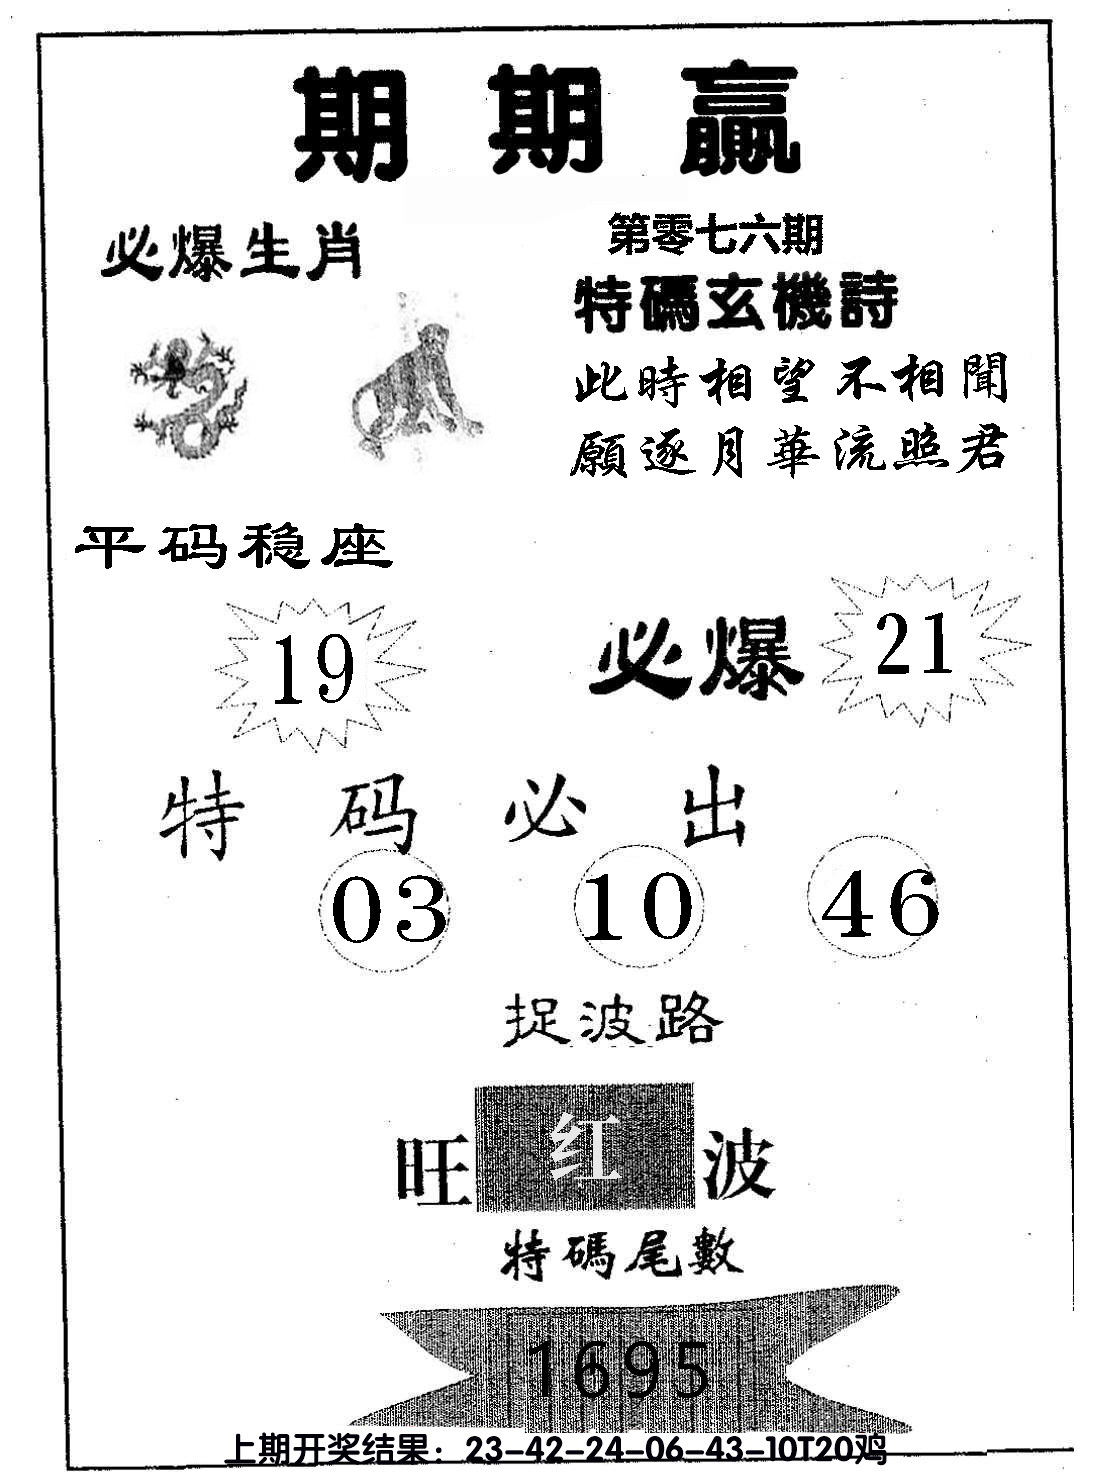 期期贏
必爆生肖
第零七六期
特碼玄機詩
此時相望不相聞
願逐月華流照君
平码稳座
19
必爆 21
特码必出
03 10 46
捉波路
旺红波
特碼尾數
1695
上期开奖结果：23-42-24-06-43-10T20鸡